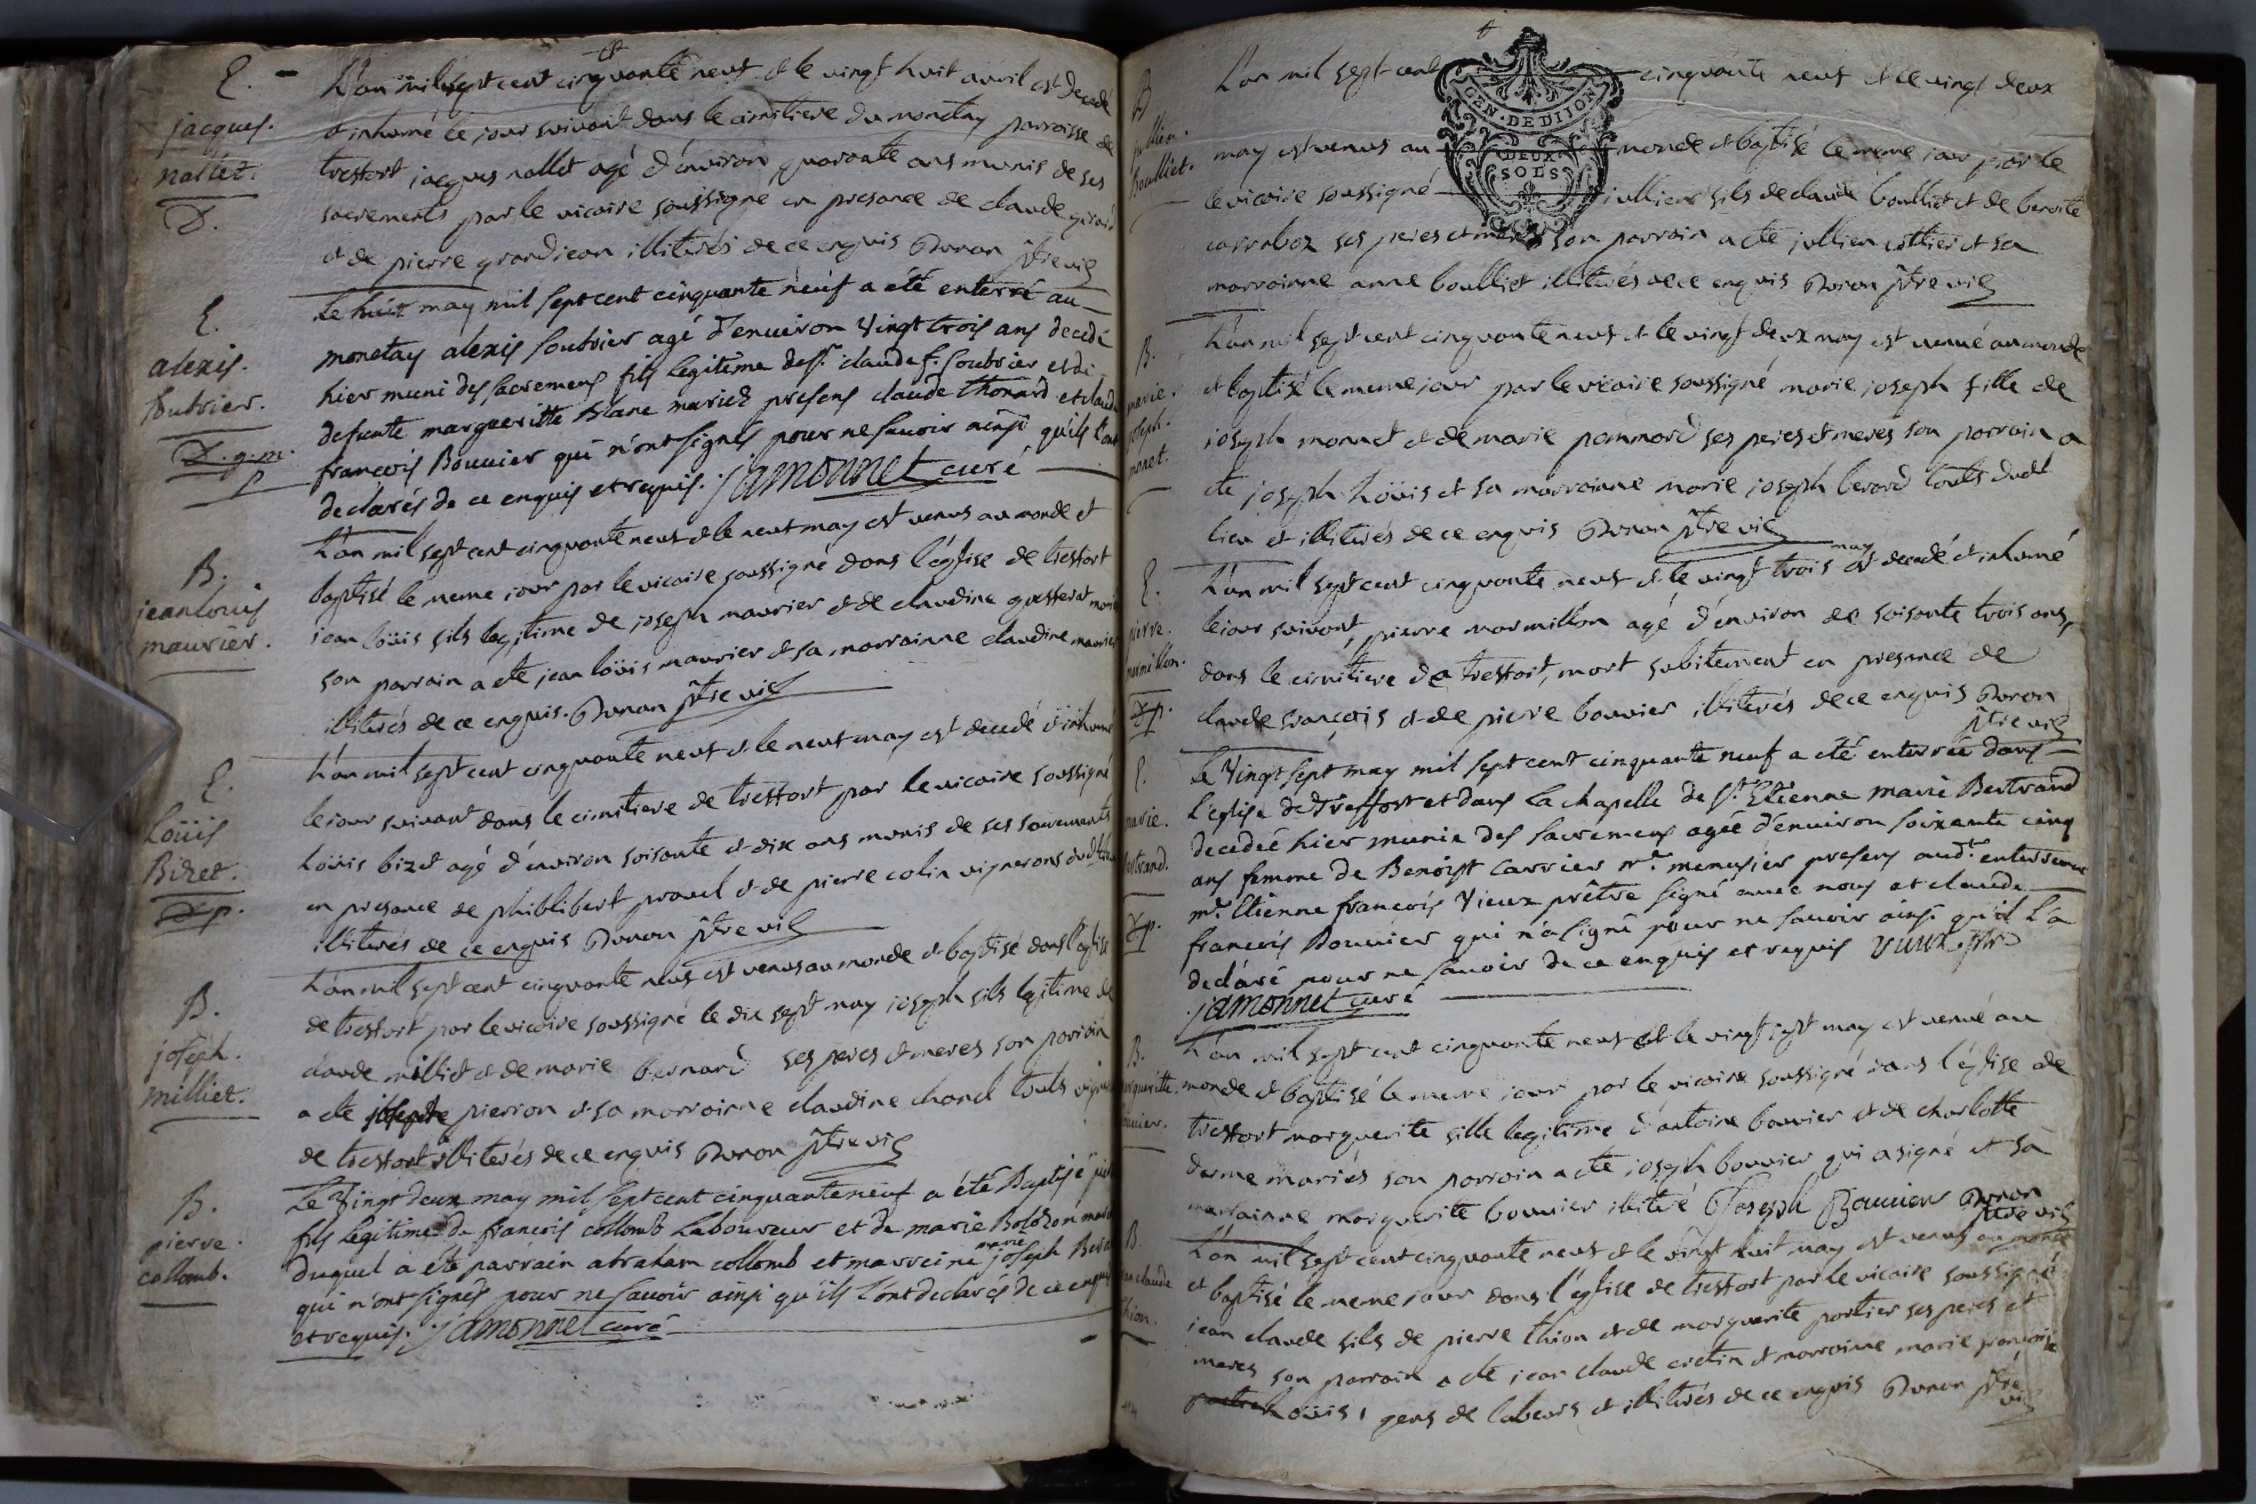 E.
jacques.
nallet.
D.
L'an mil sept cent cinquante neuf et le vingt huit avril est decedé
et inhumé le jour suivant dans le cimitiere du monetay parroisse de
treffort jacques nallet agé d'environ quarante ans munis de ses
sacrements par le vicaire soussigné en presance de claude
et de pierre grandjean illiterés de ce enquis Duran ptre vic
E.
alexis.
soubrier.
D.g.m.
p
Le huit may mil sept cent cinquante neuf a été enterré au
monetay alexis soubrier agé d'enuiron vingt trois ans decedé
hier muni des sacremens fils legitime de sr. claude f. soubrier et de
defunte margueritte Blanc mariez presens claude thonard et claude
francois Bouuier qui n'ont signés pour ne sauoir ainsi qu'ils l'ont
declarés de ce enquis et requis. jamonnet curé
B.
jean louis
maurier.
L'an mil sept cent cinquante neuf et le neuf may est venus au monde et
baptisé le meme jour par le vicaire soussigné dans l'église de treffort
jean loüis fils legitime de joseph maurier et de claudine
son parrain a eté jean loüis maurier et sa marrainne claudine maurier
illiterés de ce enquis. Duran ptre vic
E.
Loüis
Bizet.
D p.
L'an mil sept cent cinquante neuf et le neuf may est decedé et inhumé
le jour suivant dans le cimitiere de treffort par le vicaire soussigné
Loüis bizet agé d'environ soisante et dix ans munis de ses sacrements
en presance de philibert pravel et de pierre colin vignerons dud
illiterés de ce enquis Duran ptre vic
B.
joseph.
milliet.
L'an mil sept cent cinquante neuf est venus au monde et baptisé dans l'eglise
de treffort par le vicaire soussigné le dix sept may joseph fils legitime de
claude milliet et de marie bernard ses peres et meres son parrain
a eté pierron et sa marrainne claudine chanel touts
de treffort illiterés de ce enquis Duran ptre vic
B.
pierre.
collomb.
Le Vingt deux may mil sept cent cinquante neuf a été Baptisé
fils legitime de francois collomb laboureur et de marie Bolozon
duquel a été parrain abraham collomb et marreine marie joseph
qui n'ont signés pour ne sauoir ainsi qu'ils l'ont declarés de ce enquis
et requis. jamonnet curé
GEN. DE DIJON
DEUX
SOLS
B
jullien.
boulliet.
L'an mil sept cent cinquante neuf et le vingt deux
may est venus au monde et baptisé le meme jour par le
le vicaire soussigné jullien fils de claude boulliet et de benoite
carrabox ses peres et meres son parrain a eté jullien cottier et sa
marrainne anne boulliet illiterés de ce enquis Duran ptre vic
B.
marie.
joseph.
monet.
L'an mil sept cent cinquante neuf et le vingt deux may est venue au monde
et baptisé le meme jour par le vicaire soussigné marie joseph fille de
joseph monnet et de marie pommard ses peres et meres son parrain a
eté joseph hoüis et sa marrainne marie joseph berard touts dudt
lieu et illiterés de ce enquis Duran ptre vic
E.
pierre.
marmillon.
D p.
L'an mil sept cent cinquante neuf et le vingt trois may est decedé et inhumé
le jour suivant, pierre marmillon agé d'environ de soisante trois ans,
dans le cimitiere de treffort, mort subitement en presance de
claude françois et de pierre bouvier illiterés de ce enquis Duran
ptre vic
E.
marie.
bertrand.
D p.
Le Vingt sept may mil sept cent cinquante neuf a été enterrée dans
l'eglise de treffort et dans la chapelle de St. Etienne marie Bertrand
decedée hier munie des sacremens agée d'enuiron soixante cinq
ans femme de Benoist carrier me. menusier presens audt. enterrement
mre. Etienne francois Vieux prêtre signé auec nous et claude
francois Bouuier qui n'a signé pour ne sauoir ainsi qu'il l'a
declaré pour ne sauoir de ce enquis et requis vieux ptre
jamonnet curé
B.
L'an mil sept cent cinquante neuf et le vingt sept may est venue au
monde et baptisé le meme jour par le vicaire soussigné dans l'église de
treffort marguerite fille legitime d'antoine bouvier et de charlotte
darme mariés son parrain a eté joseph bouvier qui a signé et sa
marrainne marguerite bouvier illiteré Joseph Bouuier Duran
ptre vic
B.
jean claude
thion.
L'an mil sept cent cinquante neuf et le vingt huit may est venus au monde
et baptisé le meme jour dans l'église de treffort par le vicaire soussigné
jean claude fils de pierre thion et de marguerite portier ses peres et
meres son parrain a eté jean claude cretin et marrainne marie françoise
hoüis, gens de labeurs et illiterés de ce enquis Duran ptre
vic